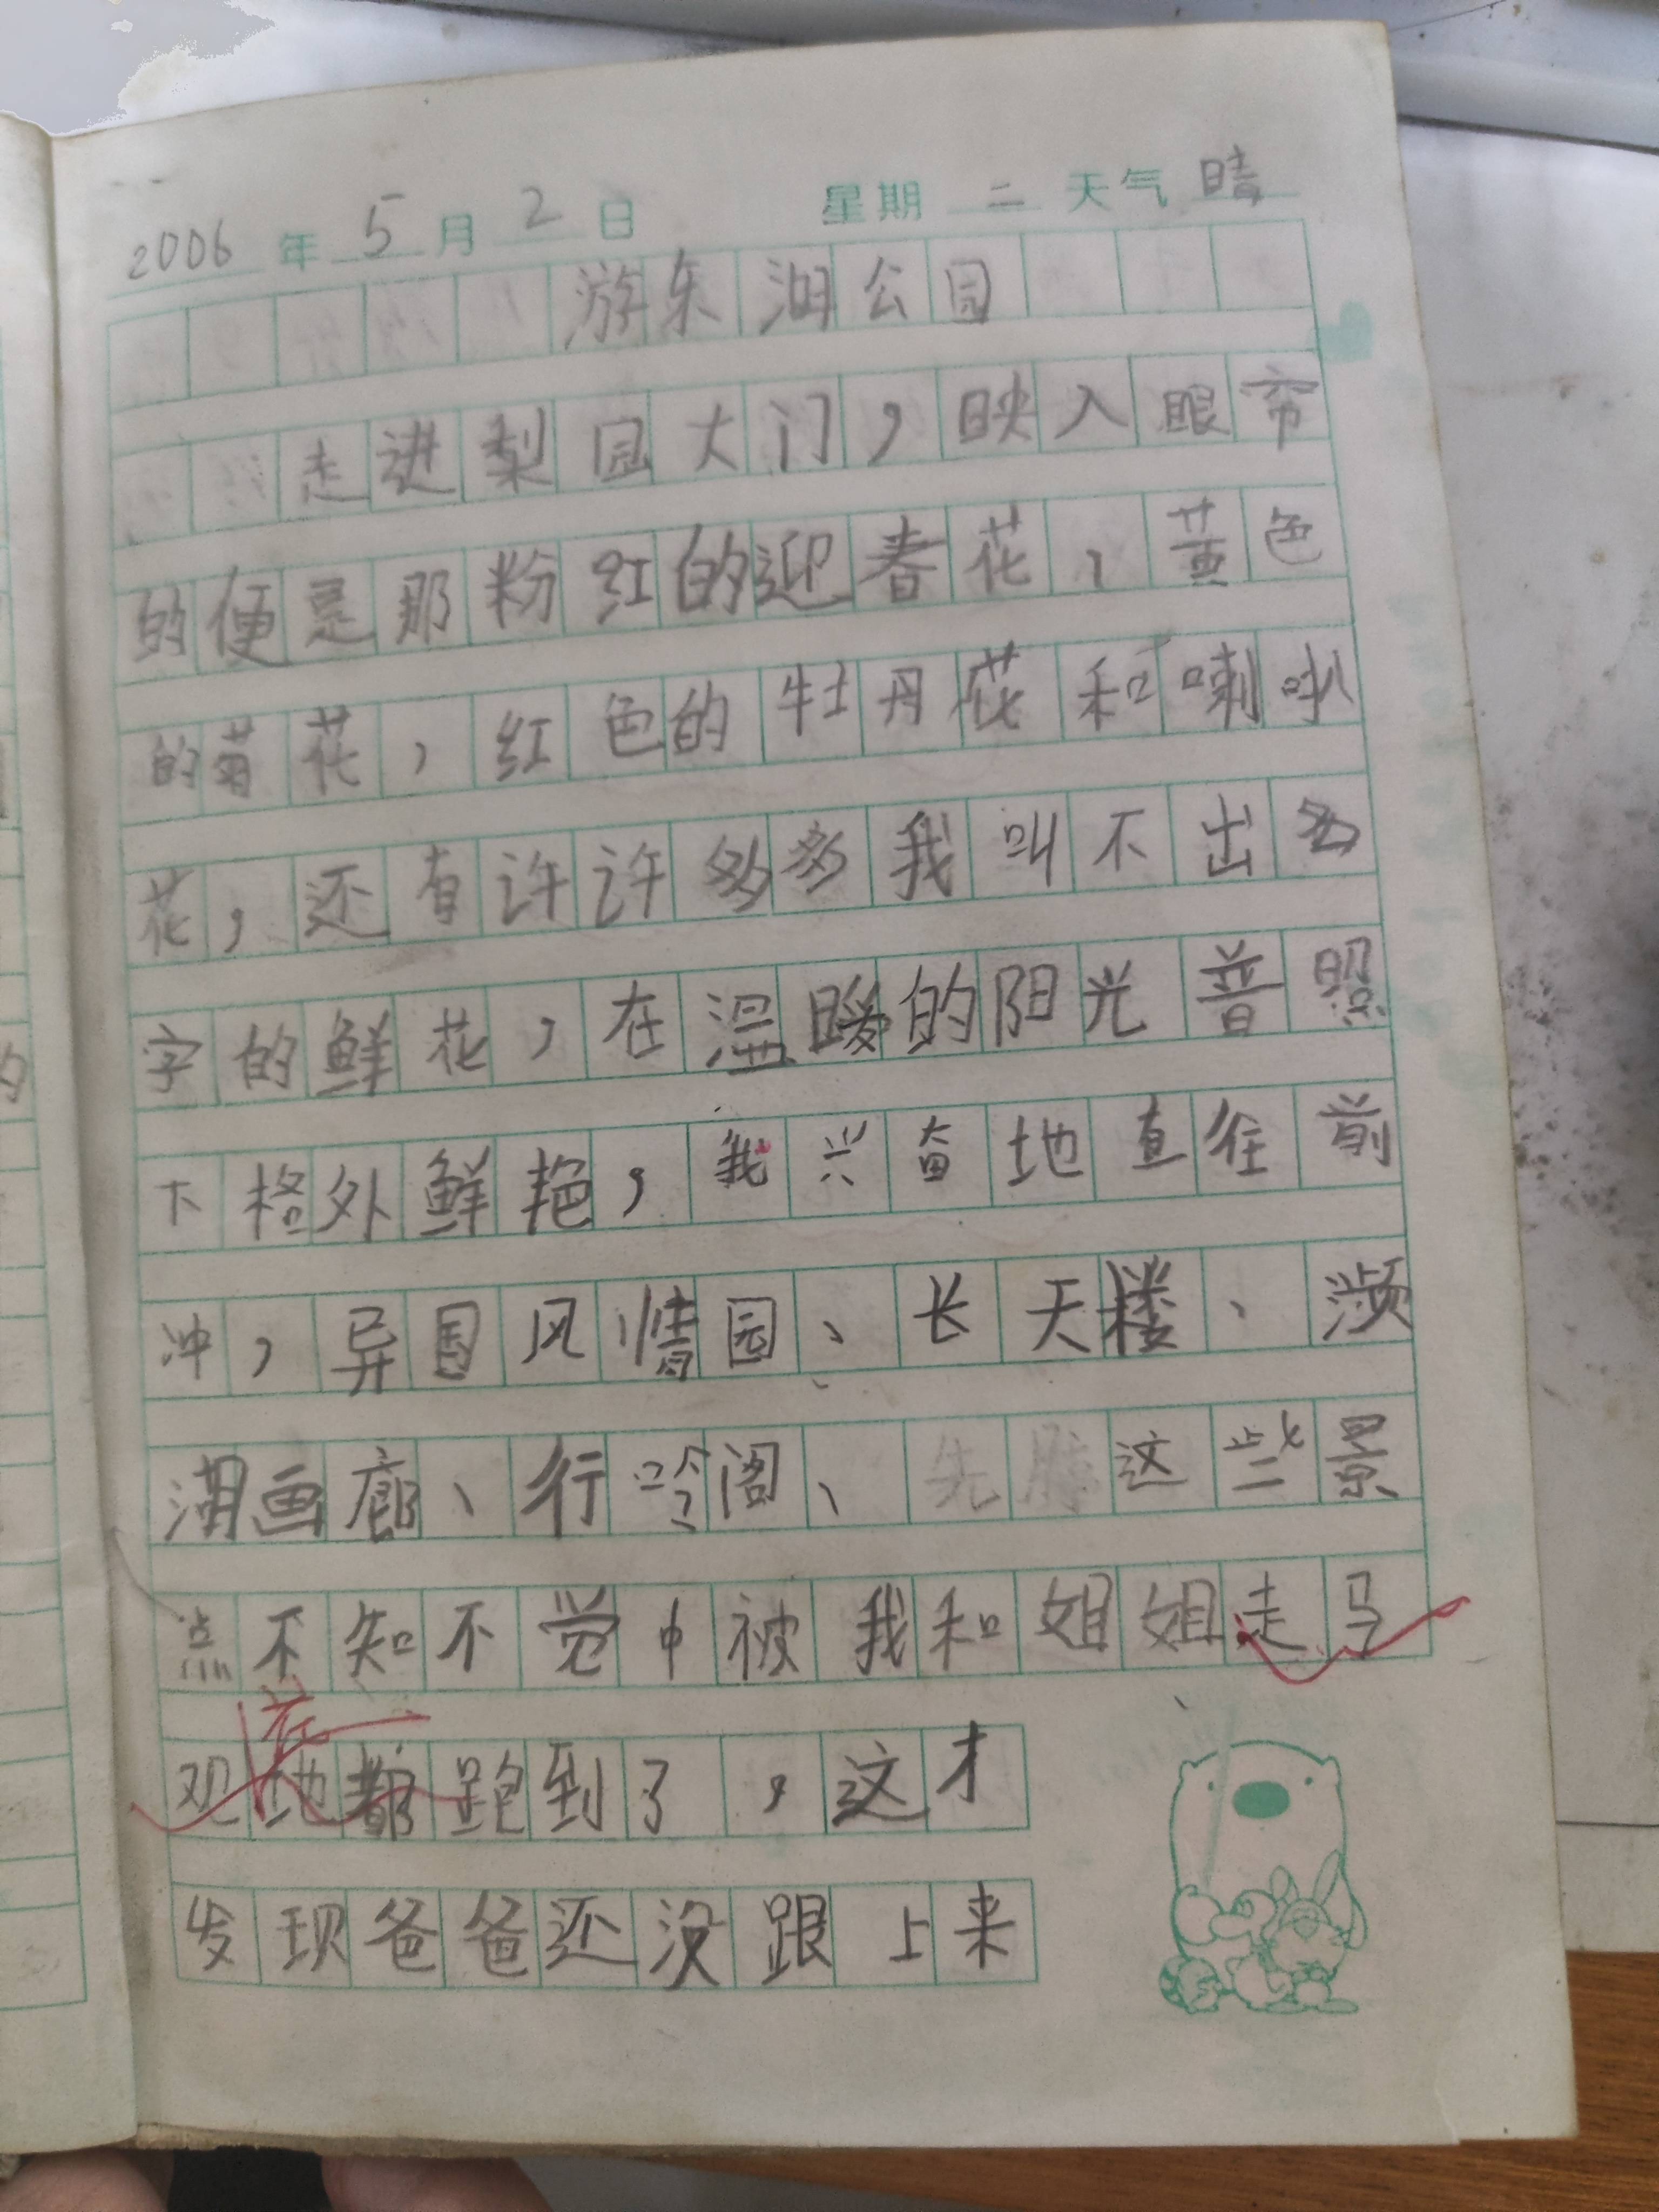 2006 年 5 月 2 日 星期 二 天气 晴
游东湖公园
走进梨园大门，映入眼帘
的便是那粉红的迎春花，黄色
的菊花，红色的牡丹花和喇叭
花，还有许许多多我叫不出名
字的鲜花，在温暖的阳光普照
下格外鲜艳，我兴奋地直往前
冲，异国风情园、长天楼、濒
湖画廊、行吟阁、先 这些景
点不知不觉中被我和姐姐走马
观花地都跑到了，这才
发现爸爸还没跟上来